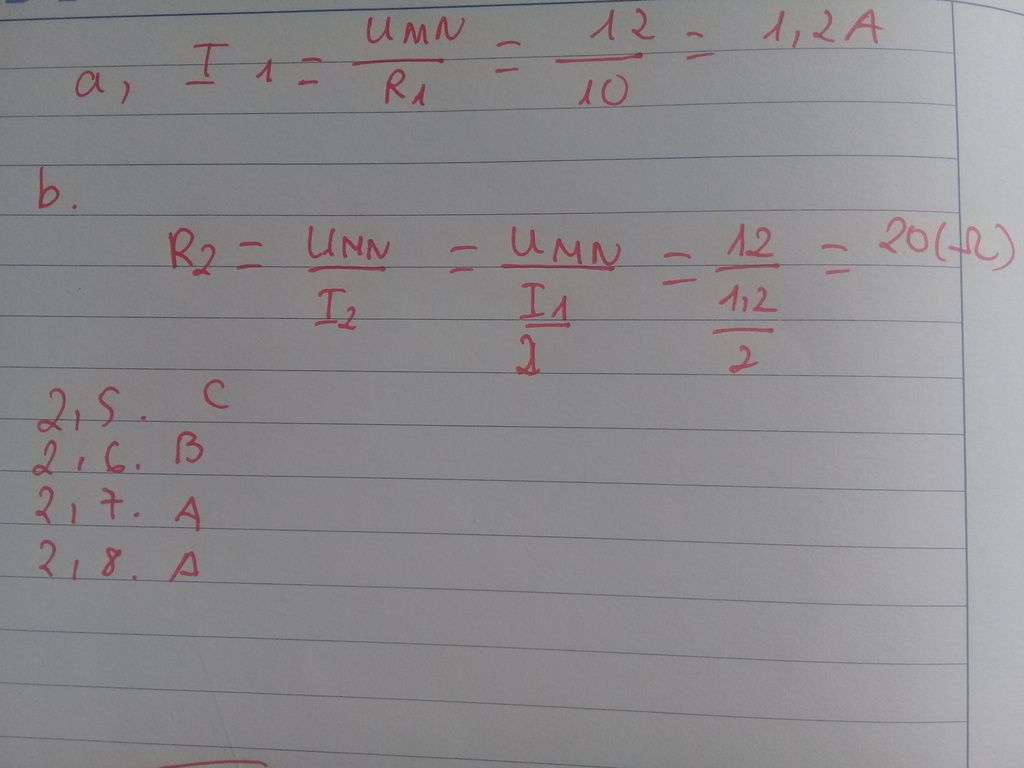 a, I1 = UMN / R1 = 12 / 10 = 1,2A
b.
R2 = UMN / I2 = UMN / (I1 / 2) = 12 / (1,2 / 2) = 20(Ω)
2,5. C
2,6. B
2,7. A
2,8. A